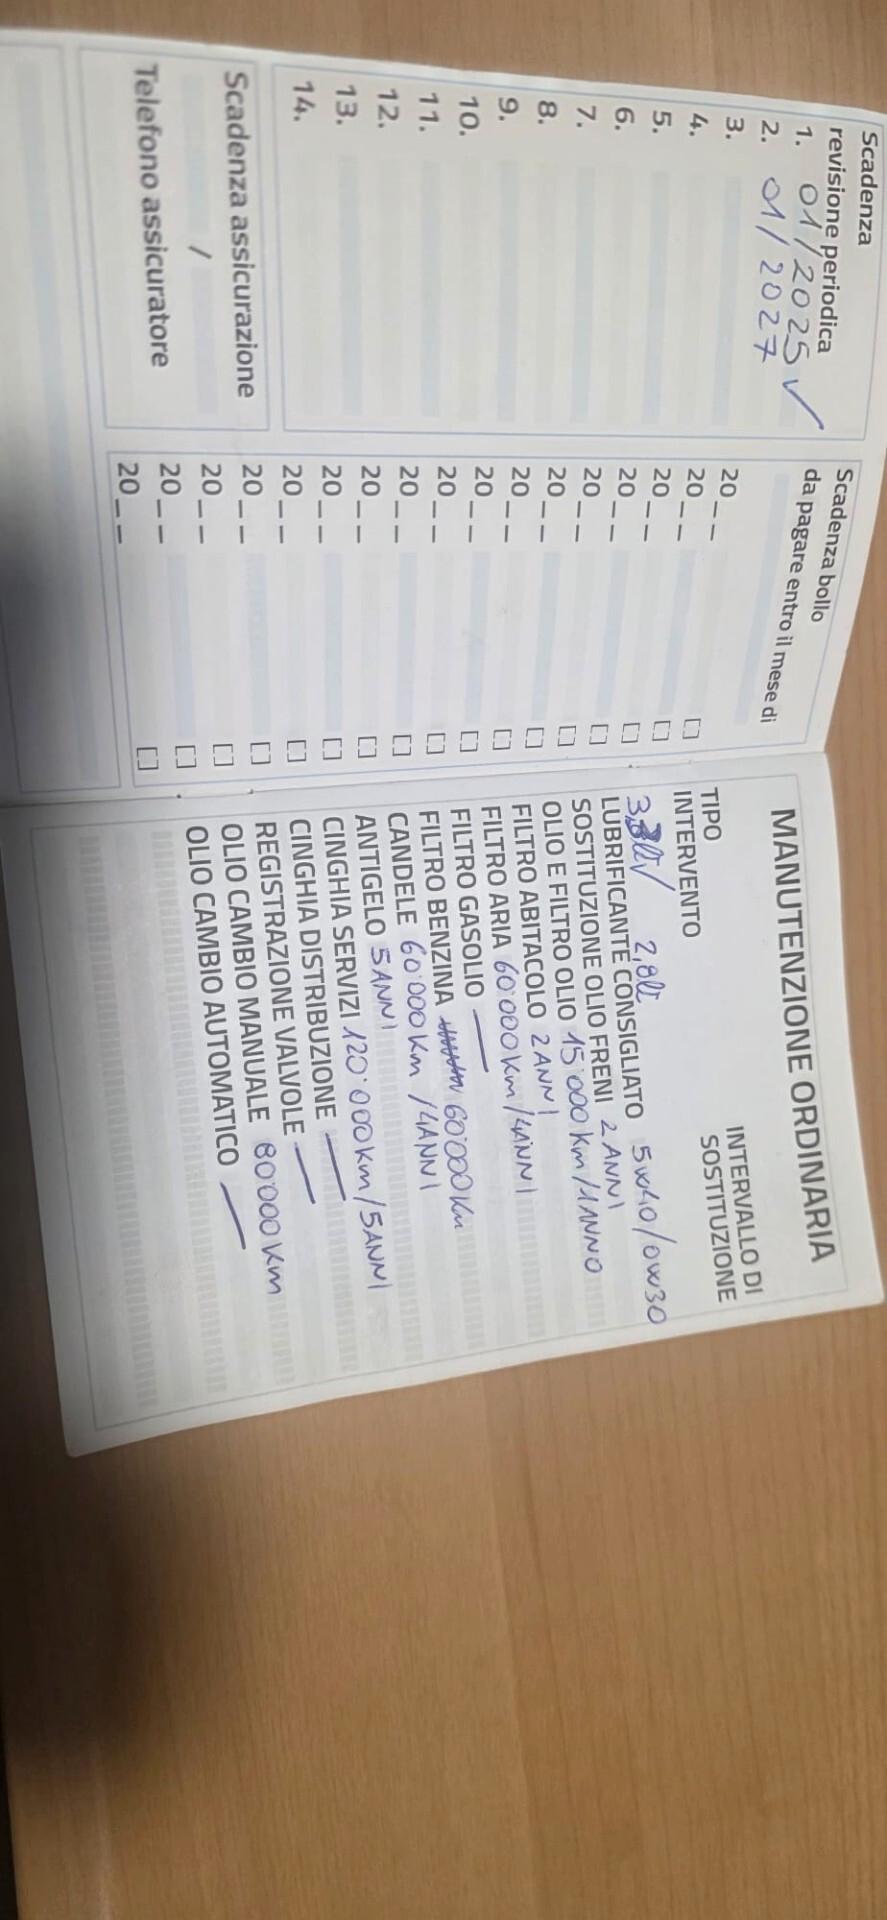 Scadenza
revisione periodica
1. 01/2025 ✓
2. 01/2027
3.
4.
5.
6.
7.
8.
9.
10.
11.
12.
13.
14.
Scadenza assicurazione
/
Telefono assicuratore
Scadenza bollo
da pagare entro il mese di
20_ _
20_ _
20_ _
20_ _
20_ _
20_ _
20_ _
20_ _
20_ _
20_ _
20_ _
20_ _
20_ _
20_ _
20_ _
20_ _
MANUTENZIONE ORDINARIA
TIPO INTERVENTO
INTERVALLO DI SOSTITUZIONE
2,8lt
LUBRIFICANTE CONSIGLIATO 5W40/0W30
SOSTITUZIONE OLIO FRENI 2 ANNI
OLIO E FILTRO OLIO 15'000 Km/1ANNO
FILTRO ABITACOLO 2 ANNI
FILTRO ARIA 60'000Km/4ANNI
FILTRO GASOLIO —
FILTRO BENZINA 60'000Km
CANDELE 60'000Km/4ANNI
ANTIGELO 5ANNI
CINGHIA SERVIZI 120'000Km/5ANNI
CINGHIA DISTRIBUZIONE —
REGISTRAZIONE VALVOLE —
OLIO CAMBIO MANUALE 80'000Km
OLIO CAMBIO AUTOMATICO —